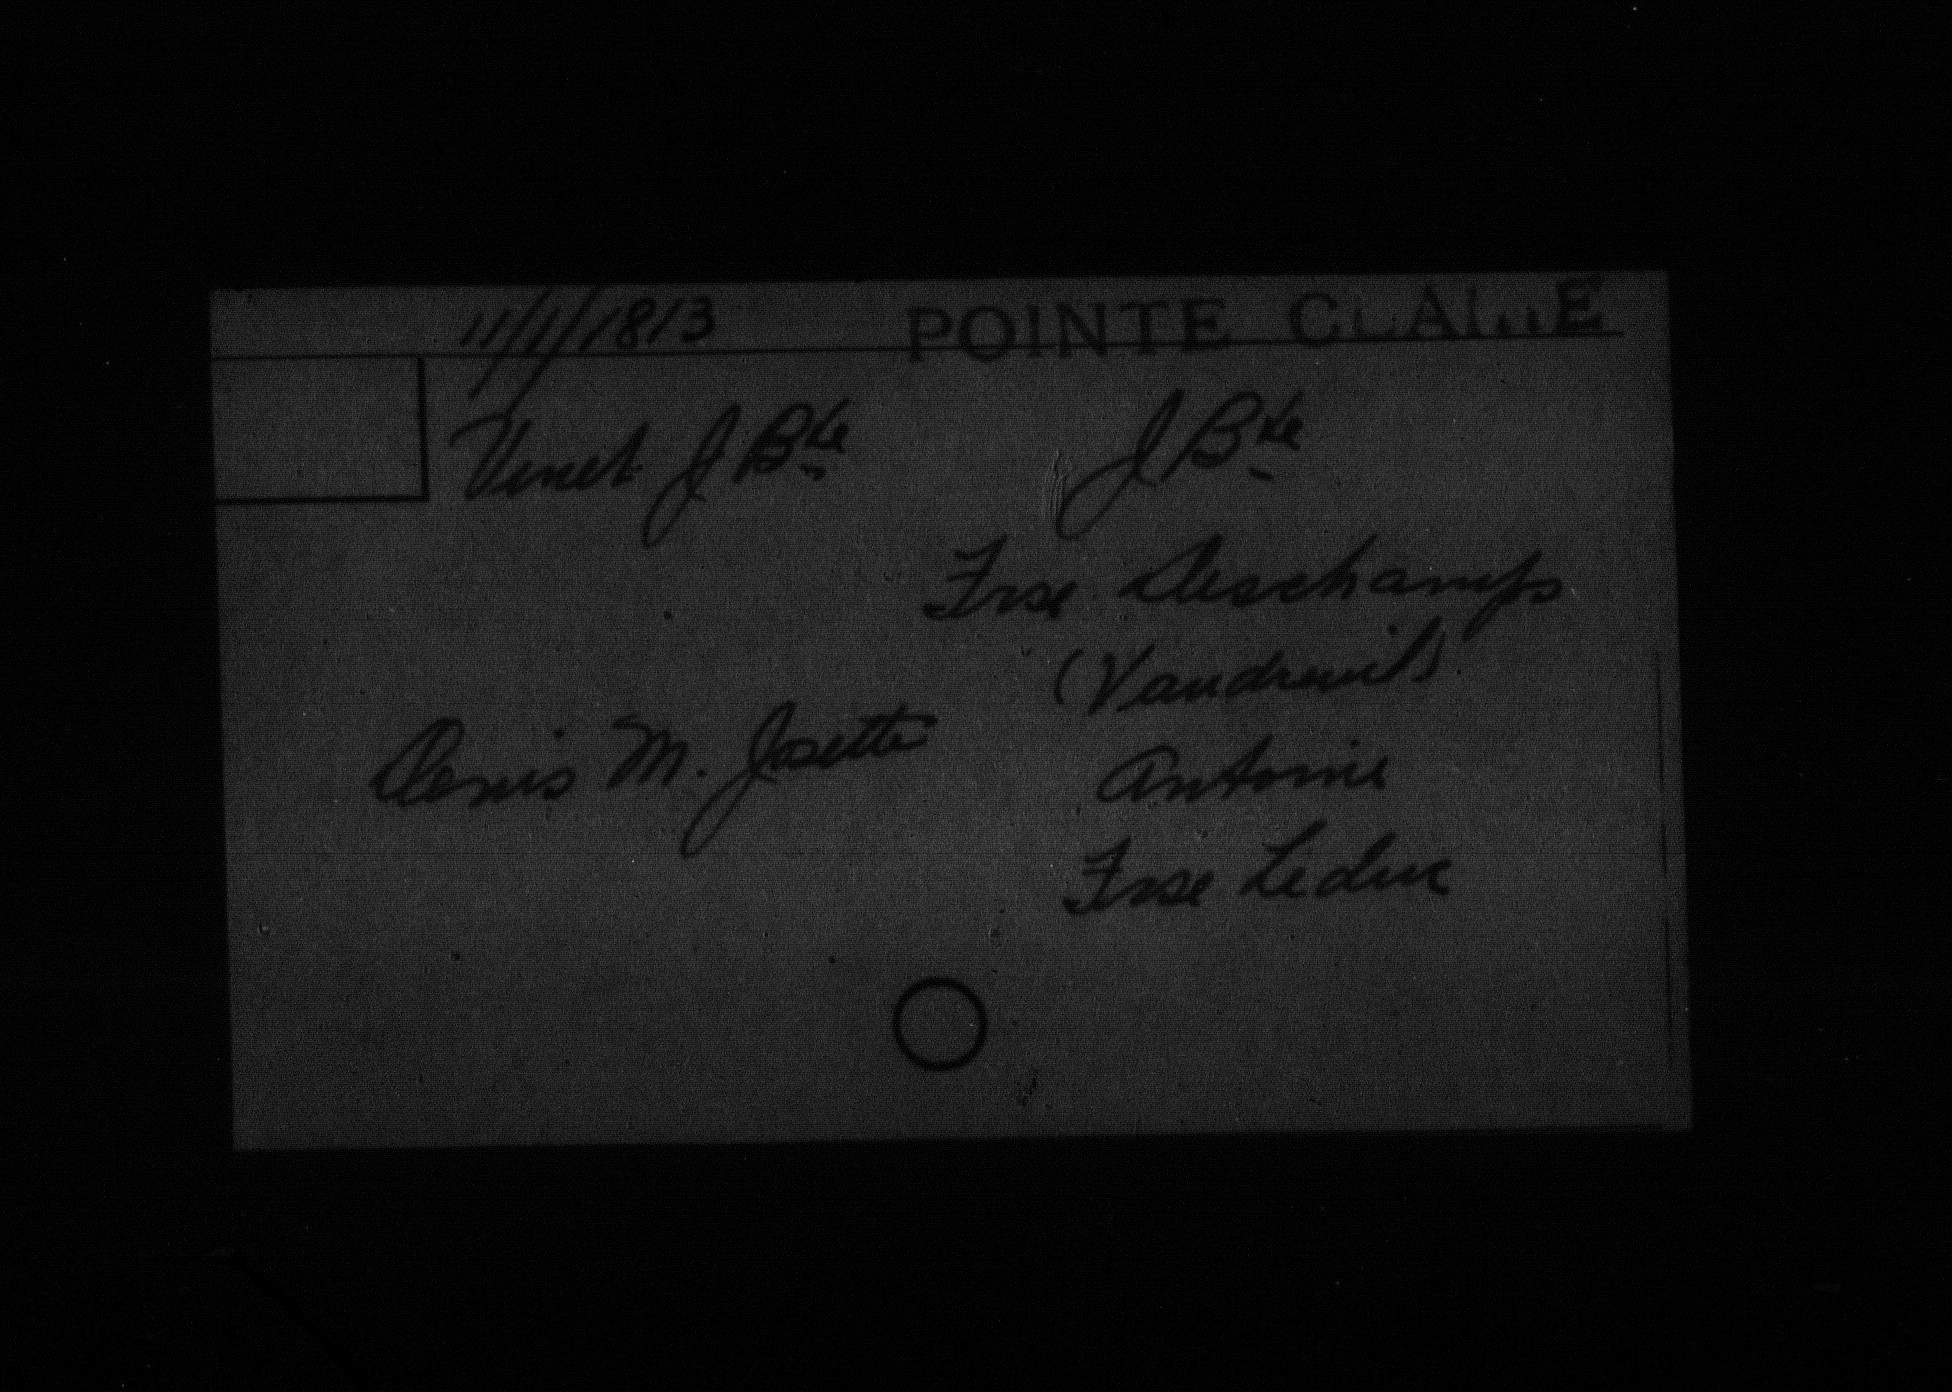 11/1/1813 POINTE CLAIRE
Venet J Bte J Bte
Frse Deschamps
(Vaudreuil)
Denis M. Josette Antoine
Frse Leduc